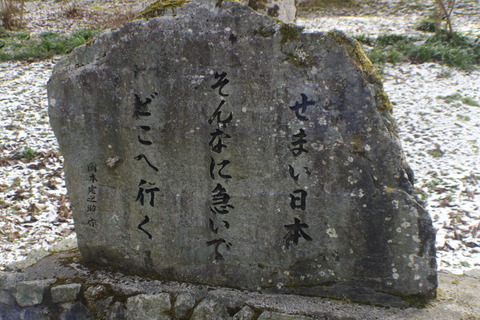 せまい日本
そんなに急いで
どこへ行く